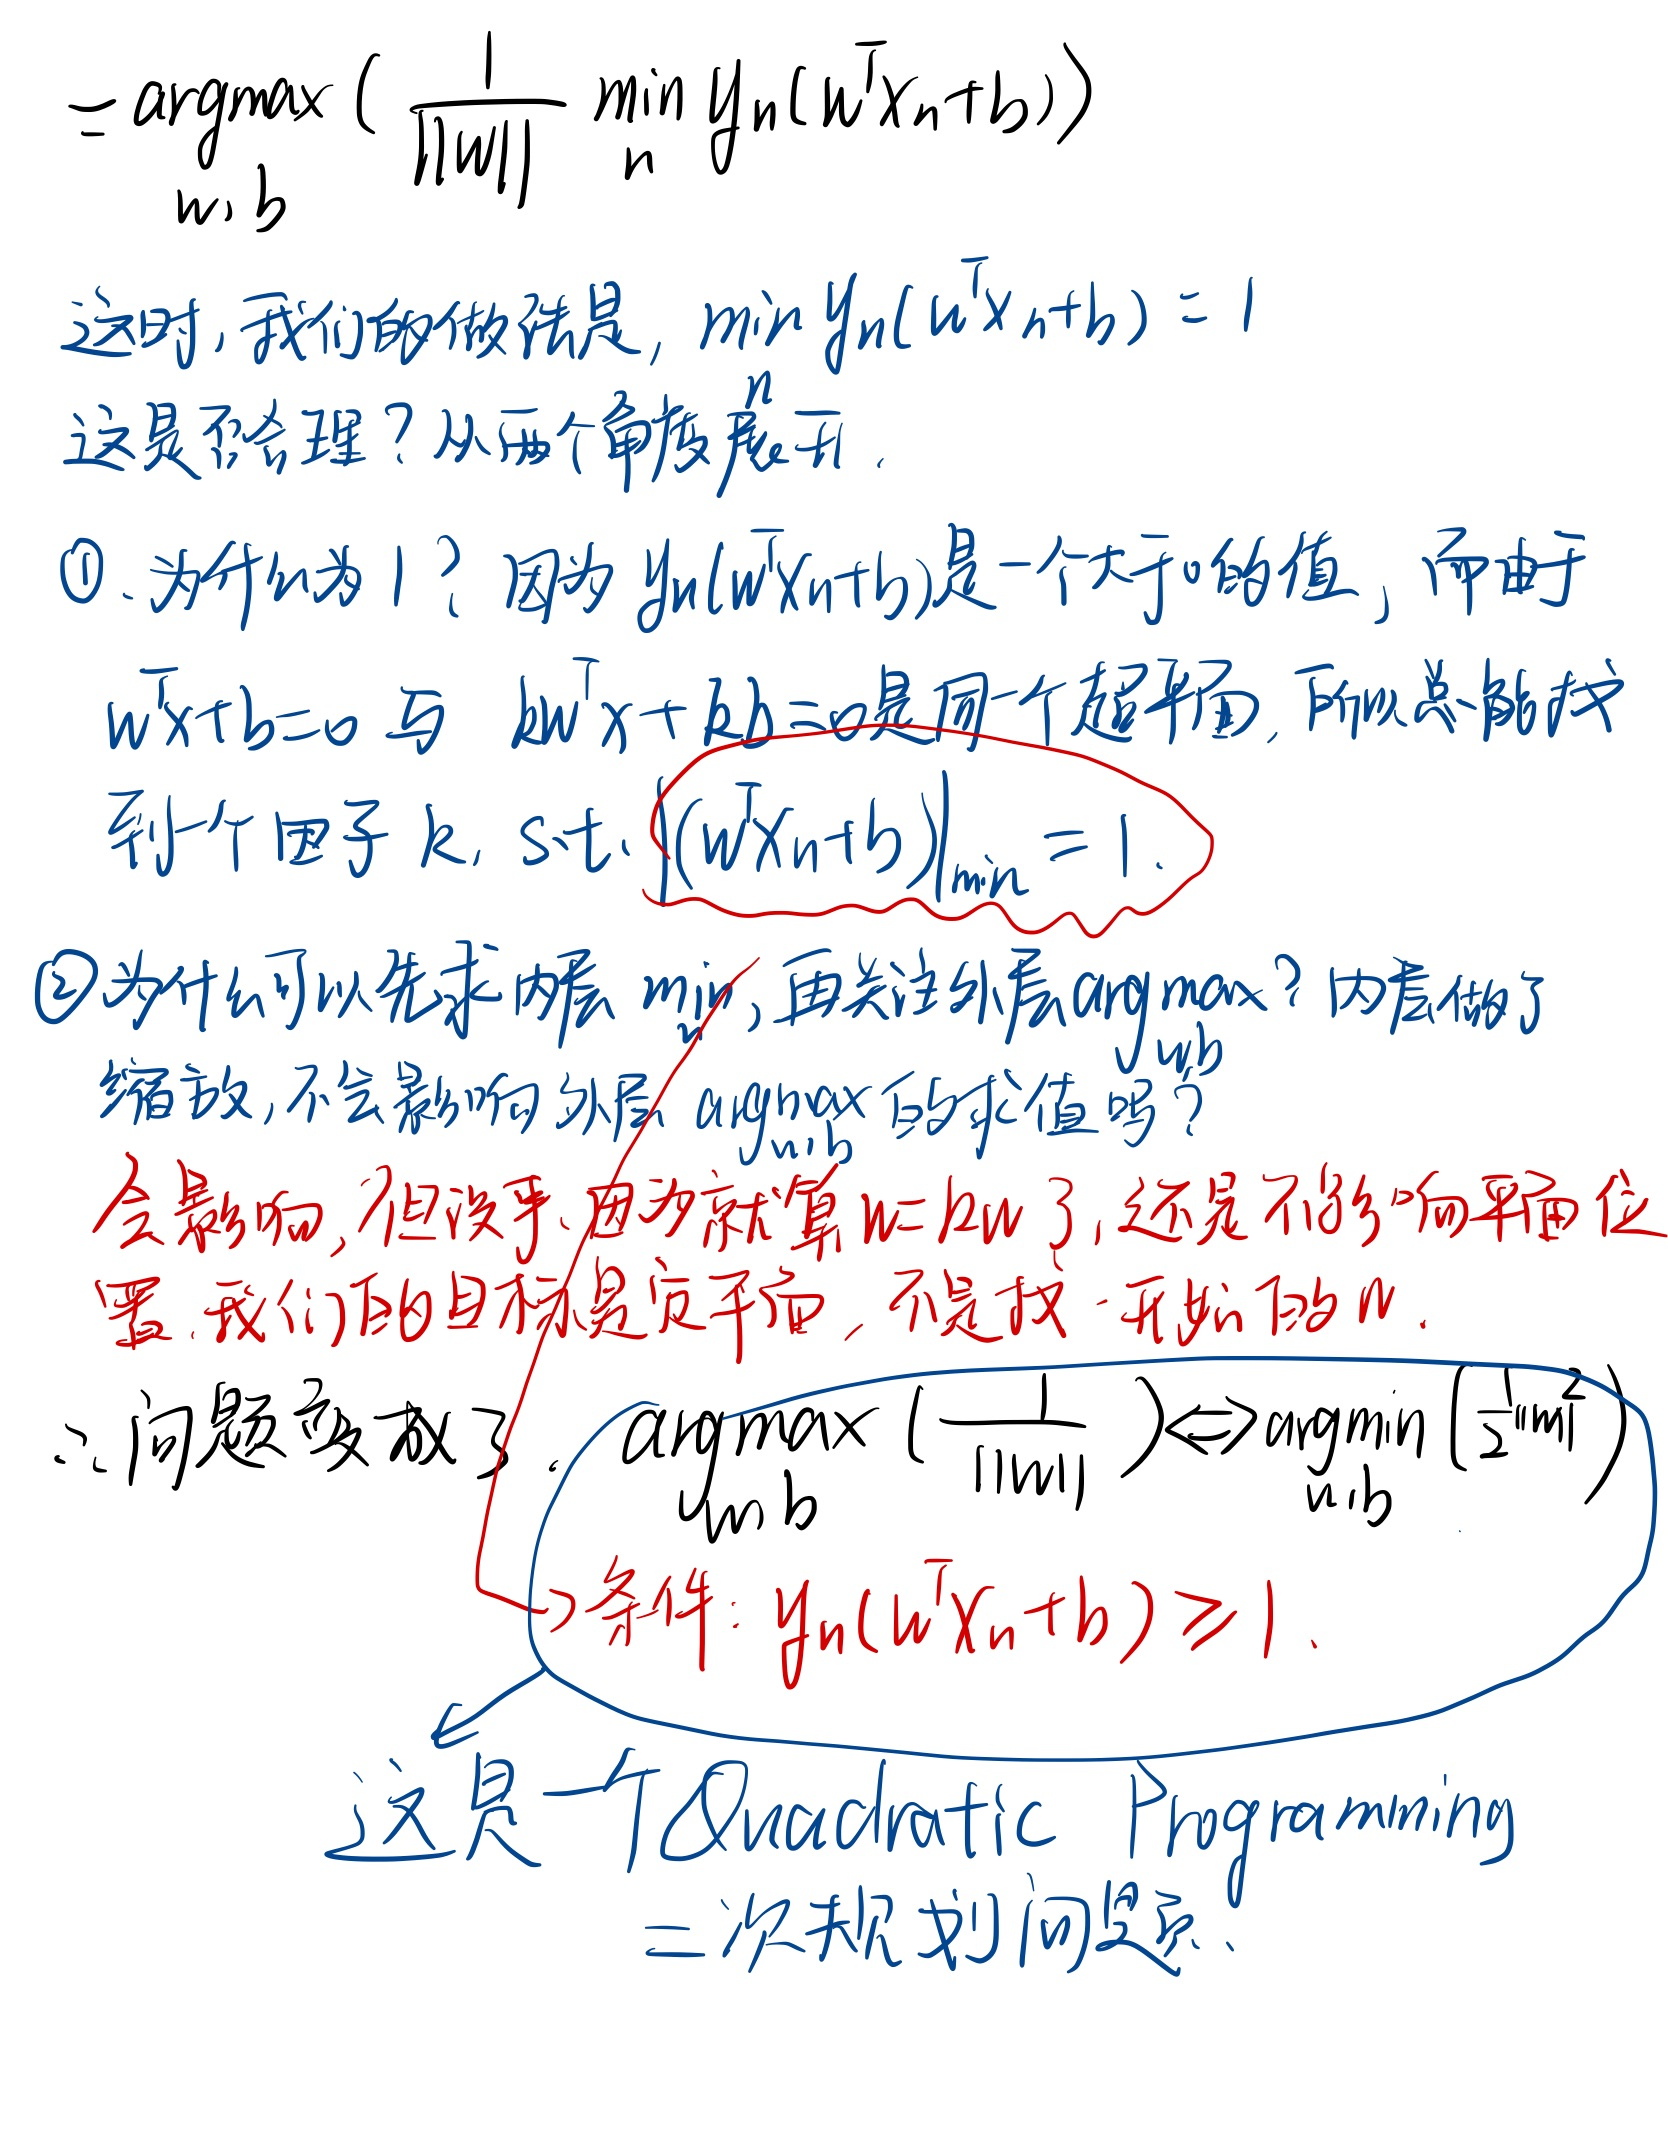 = argmax ( 1/||w|| min yn(wᵀxn+b))
w,b n
这时,我们的做法是, min yn(wᵀxn+b) = 1
n
这是否合理?从两个角度展开.
①.为什么为1? 因为 yn(wᵀxn+b)是一个大于0的值,而由于
wᵀx+b=0 与 kwᵀx+kb=0是同一个超平面,所以总能找
到一个因子 k, s.t. |(wᵀxn+b)|min = 1.
②为什么可以先求内层 min,再关注外层argmax?内层做了
n w,b
缩放,不会影响外层 argmax 的求值吗?
w,b
会影响,但没事.因为就算w=kw了,还是不影响平面位
置.我们的目标是定平面,不是找一开始的w.
∴问题变成了. argmax ( 1/||w|| )⇔argmin ( 1/2 ||w||² )
w,b w,b
条件: yn(wᵀxn+b) ≥ 1.
这是一个Quadratic Programming
二次规划问题.